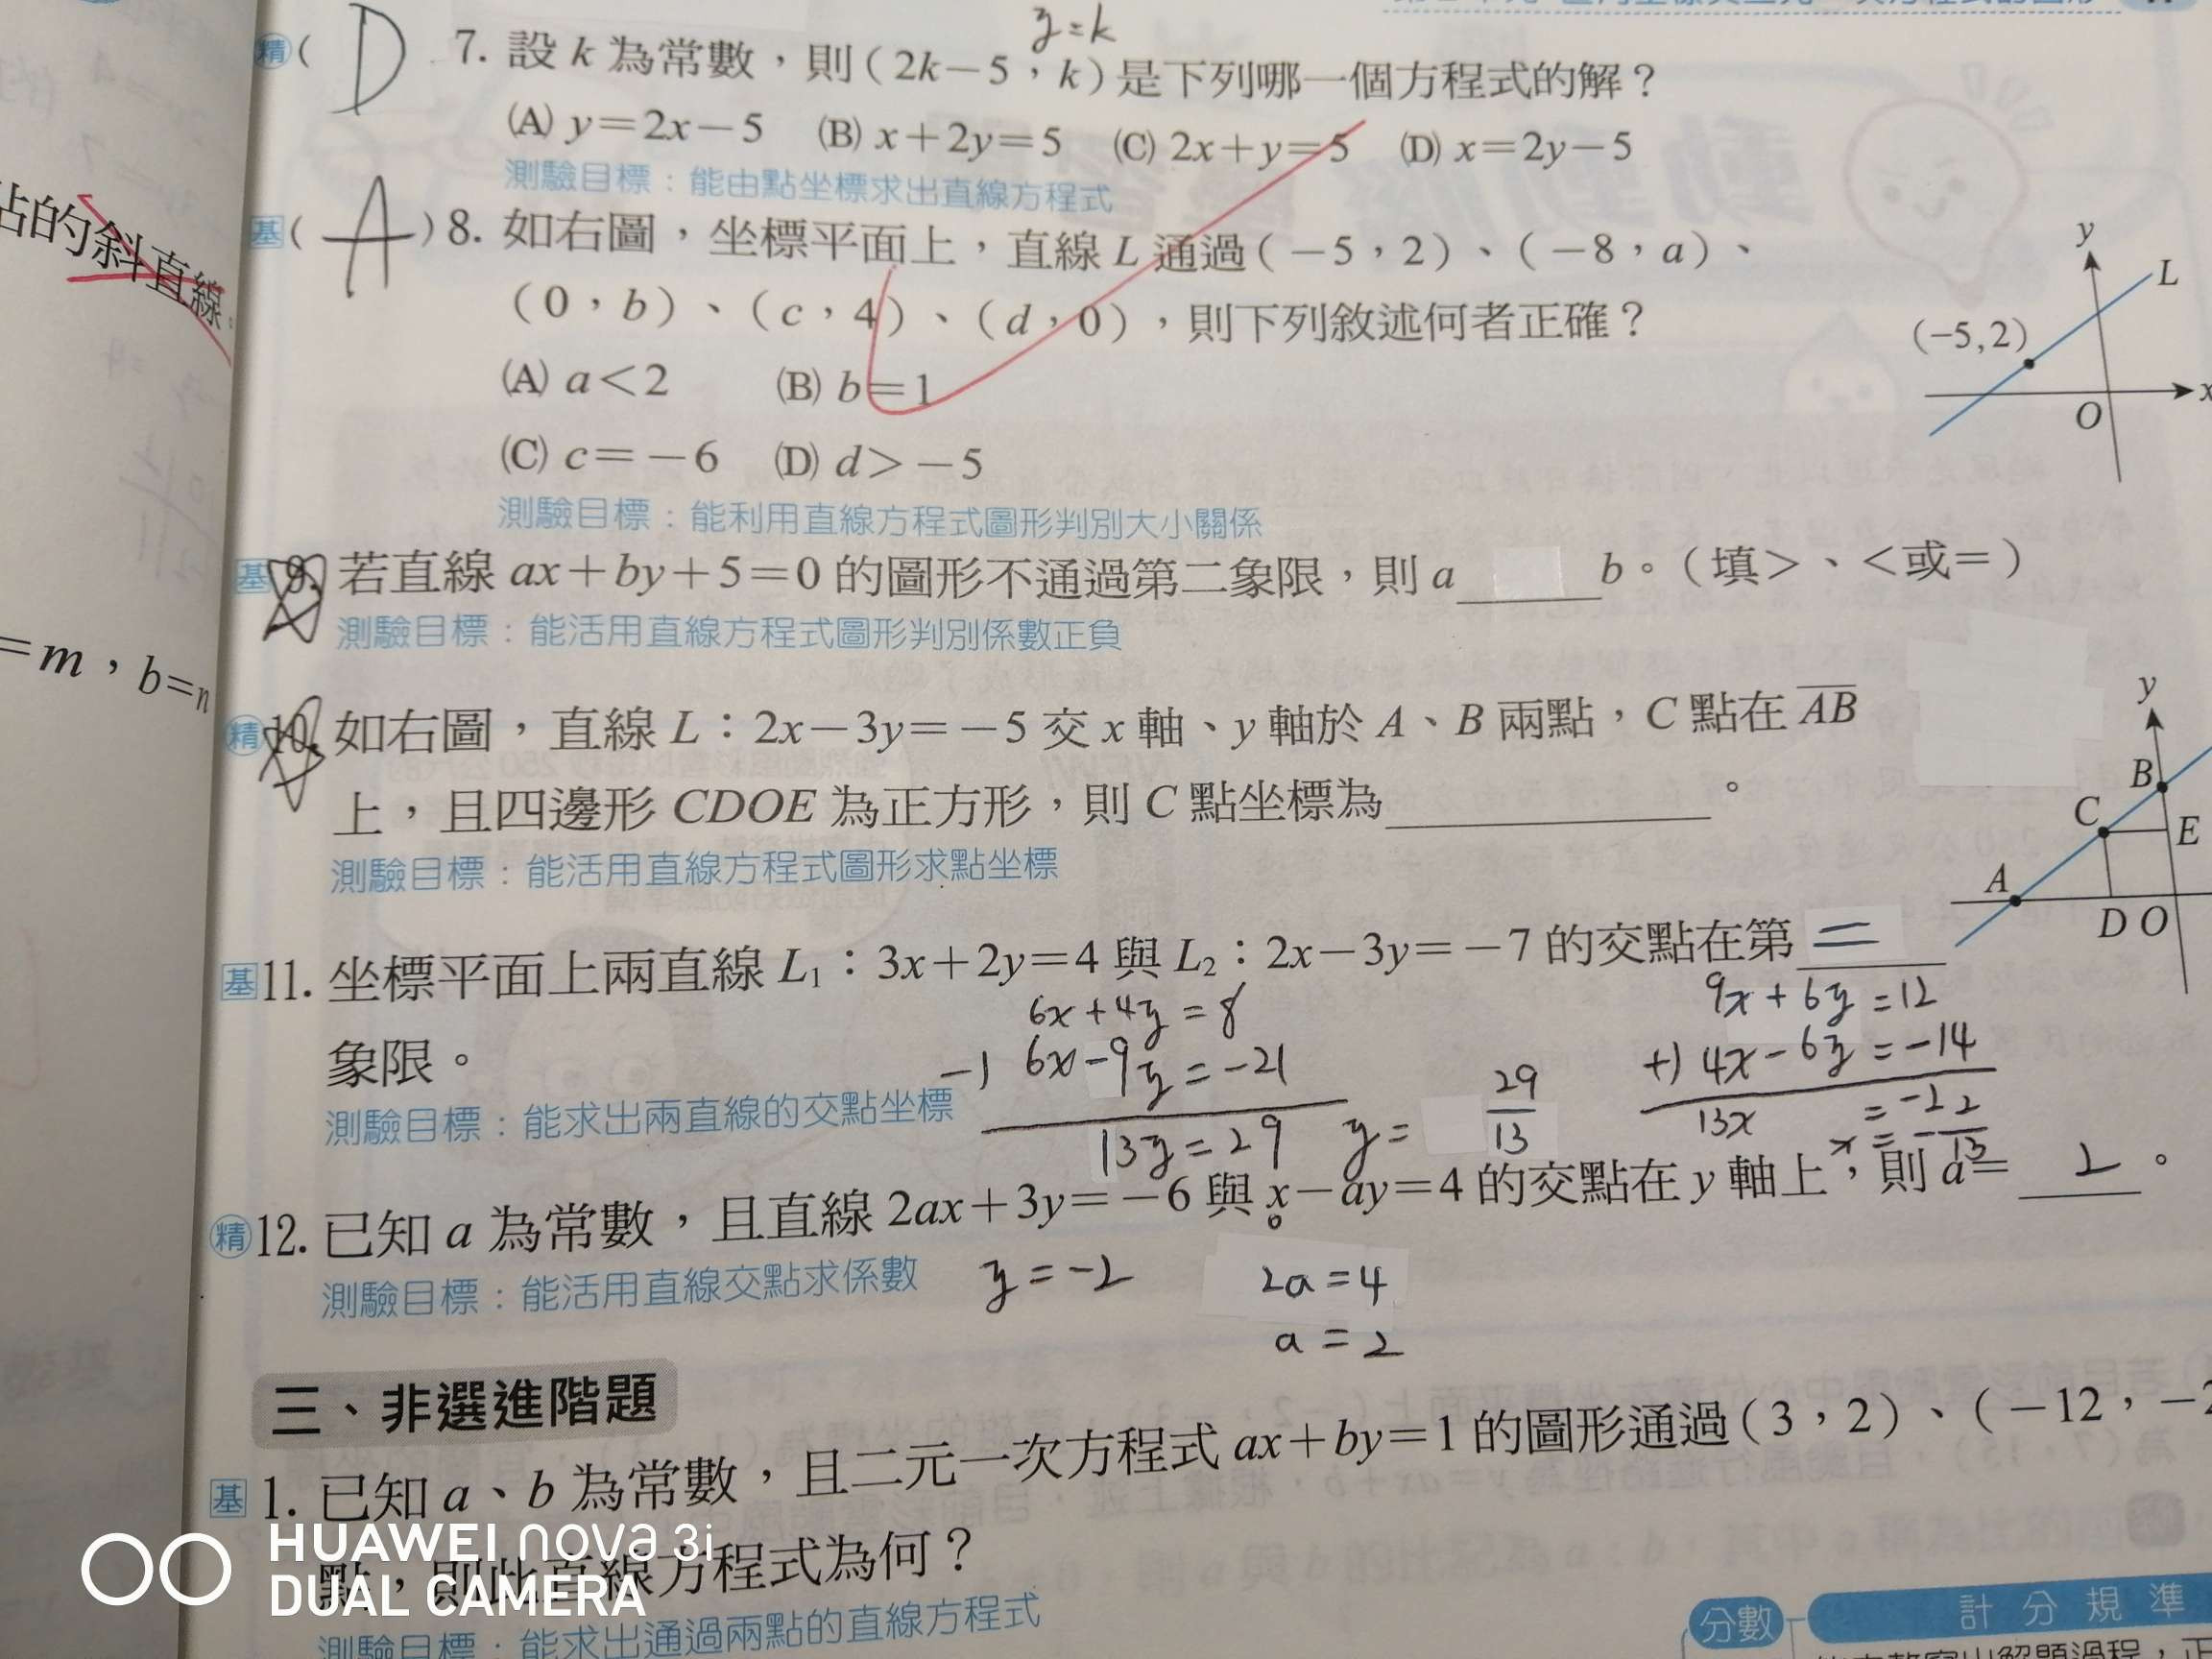 精( D 7. 設 k 為常數，則(2k－5，k)是下列哪一個方程式的解？
y=k
(A) y＝2x－5 (B) x＋2y＝5 (C) 2x＋y＝5 (D) x＝2y－5
測驗目標：能由點坐標求出直線方程式
基( A )8. 如右圖，坐標平面上，直線 L 通過(－5，2)、(－8，a)、
(0，b)、(c，4)、(d，0)，則下列敘述何者正確？
(A) a＜2 (B) b＝1
(C) c＝－6 (D) d＞－5
測驗目標：能利用直線方程式圖形判別大小關係
y
L
(−5,2)
x
O
基 9. 若直線 ax＋by＋5＝0 的圖形不通過第二象限，則 a b。(填＞、＜或＝)
測驗目標：能活用直線方程式圖形判別係數正負
精 10. 如右圖，直線 L：2x－3y＝－5 交 x 軸、y 軸於 A、B 兩點，C 點在 AB
上，且四邊形 CDOE 為正方形，則 C 點坐標為 。
測驗目標：能活用直線方程式圖形求點坐標
y
B
C
E
A
D O
基 11. 坐標平面上兩直線 L₁：3x＋2y＝4 與 L₂：2x－3y＝－7 的交點在第 二
象限。
測驗目標：能求出兩直線的交點坐標
6x+4y=8
-) 6x-9y=-21
13y=29 y= 29/13
9x+6y=12
+) 4x-6y=-14
13x =-22
x=-22/13
精 12. 已知 a 為常數，且直線 2ax＋3y＝－6 與 x－ay＝4 的交點在 y 軸上，則 a＝ 2 。
0
測驗目標：能活用直線交點求係數
y=-2 2a=4
a=2
三、非選進階題
基 1. 已知 a、b 為常數，且二元一次方程式 ax＋by＝1 的圖形通過(3，2)、(－12，－
點，則此直線方程式為何？
測驗目標：能求出通過兩點的直線方程式
分數 計分規準
站的斜直線。
＝m，b＝n
HUAWEI nova 3i
DUAL CAMERA